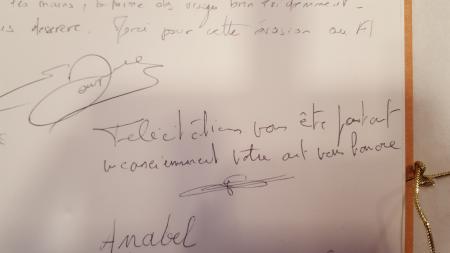 mains, la forme des visages bien évidemment.
Merci pour cette évasion au Fl
Félicitations vous être partout
inconsciemment votre art vous honore
Anabel